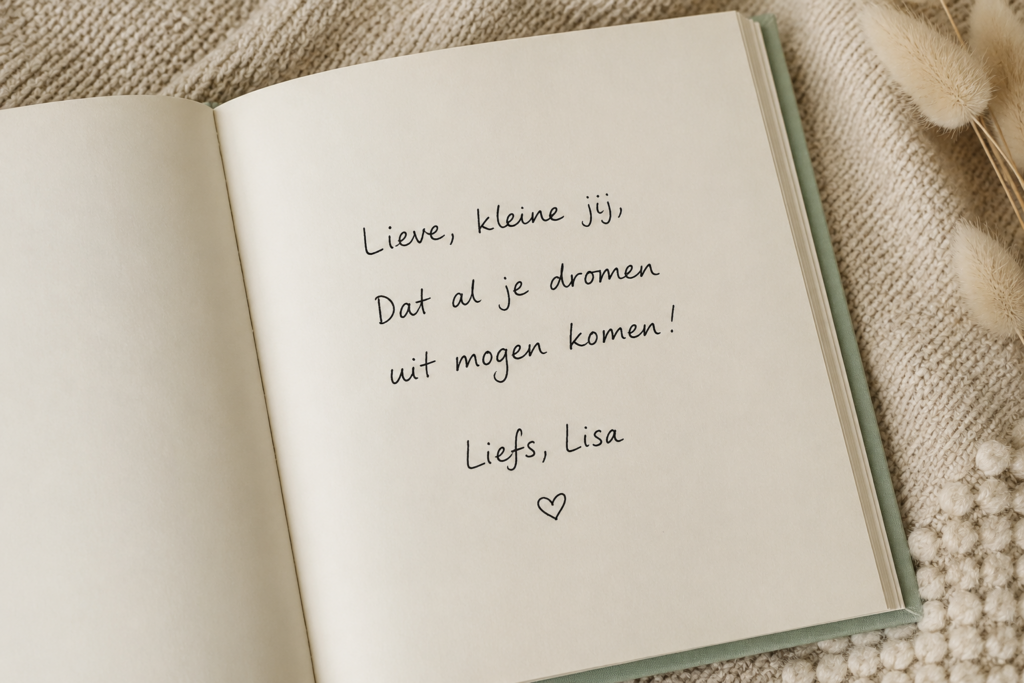 Lieve, kleine jij,
Dat al je dromen
uit mogen komen!
Liefs, Lisa